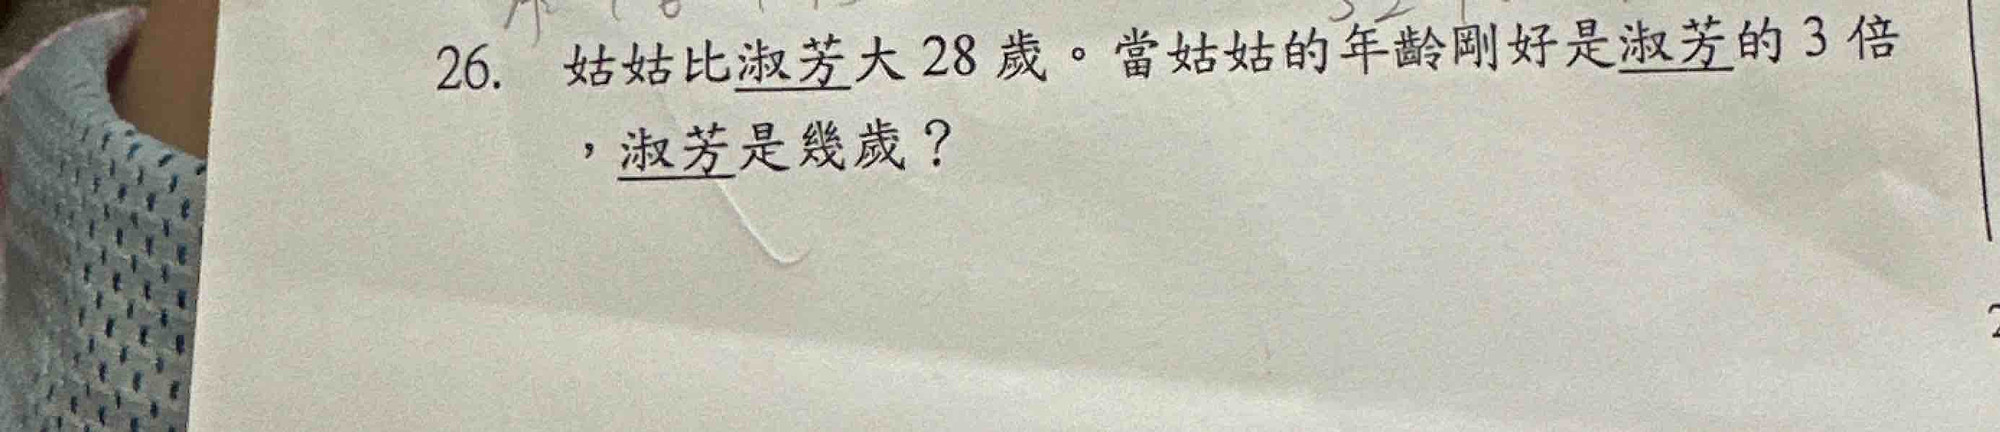 26. 姑姑比淑芳大 28 歲。當姑姑的年齡剛好是淑芳的 3 倍
，淑芳是幾歲？